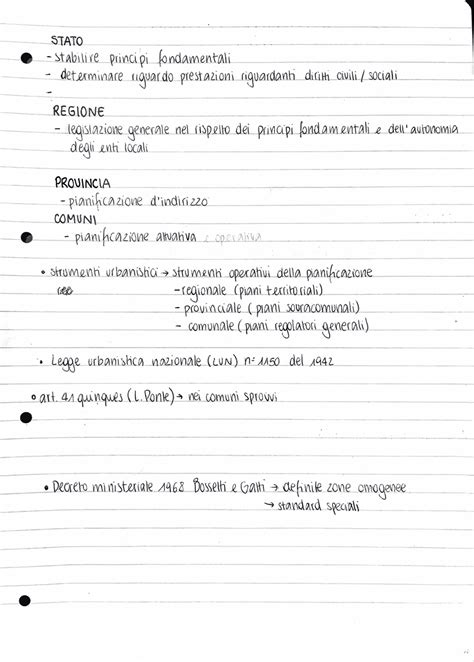 STATO
- stabilire principi fondamentali
- determinare riguardo prestazioni riguardanti diritti civili / sociali
-
REGIONE
- legislazione generale nel rispetto dei principi fondamentali e dell'autonomia
degli enti locali
PROVINCIA
- pianificazione d'indirizzo
COMUNI
- pianificazione attuativa e operativa
• strumenti urbanistici → strumenti operativi della pianificazione
- regionale (piani territoriali)
- provinciale (piani sovracomunali)
- comunale (piani regolatori generali)
• Legge urbanistica nazionale (LUN) n° 1150 del 1942
• art. 41 quinques (L. Ponte) → nei comuni sprovvi
• Decreto ministeriale 1968 Bosselti e Gatti → definite zone omogenee
→ standard speciali